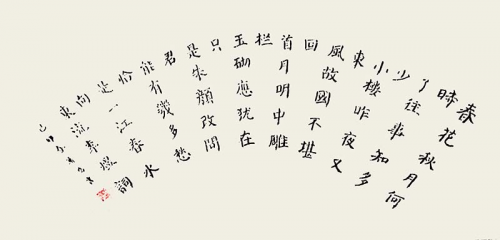 春花秋月何
時
了往事知多
少
小樓昨夜又
東
風故國不堪
回
首月明中雕
栏
玉砌應犹在
只
是朱顏改問
君
能有幾多愁
恰
是一江春水
向
東流李煜詞